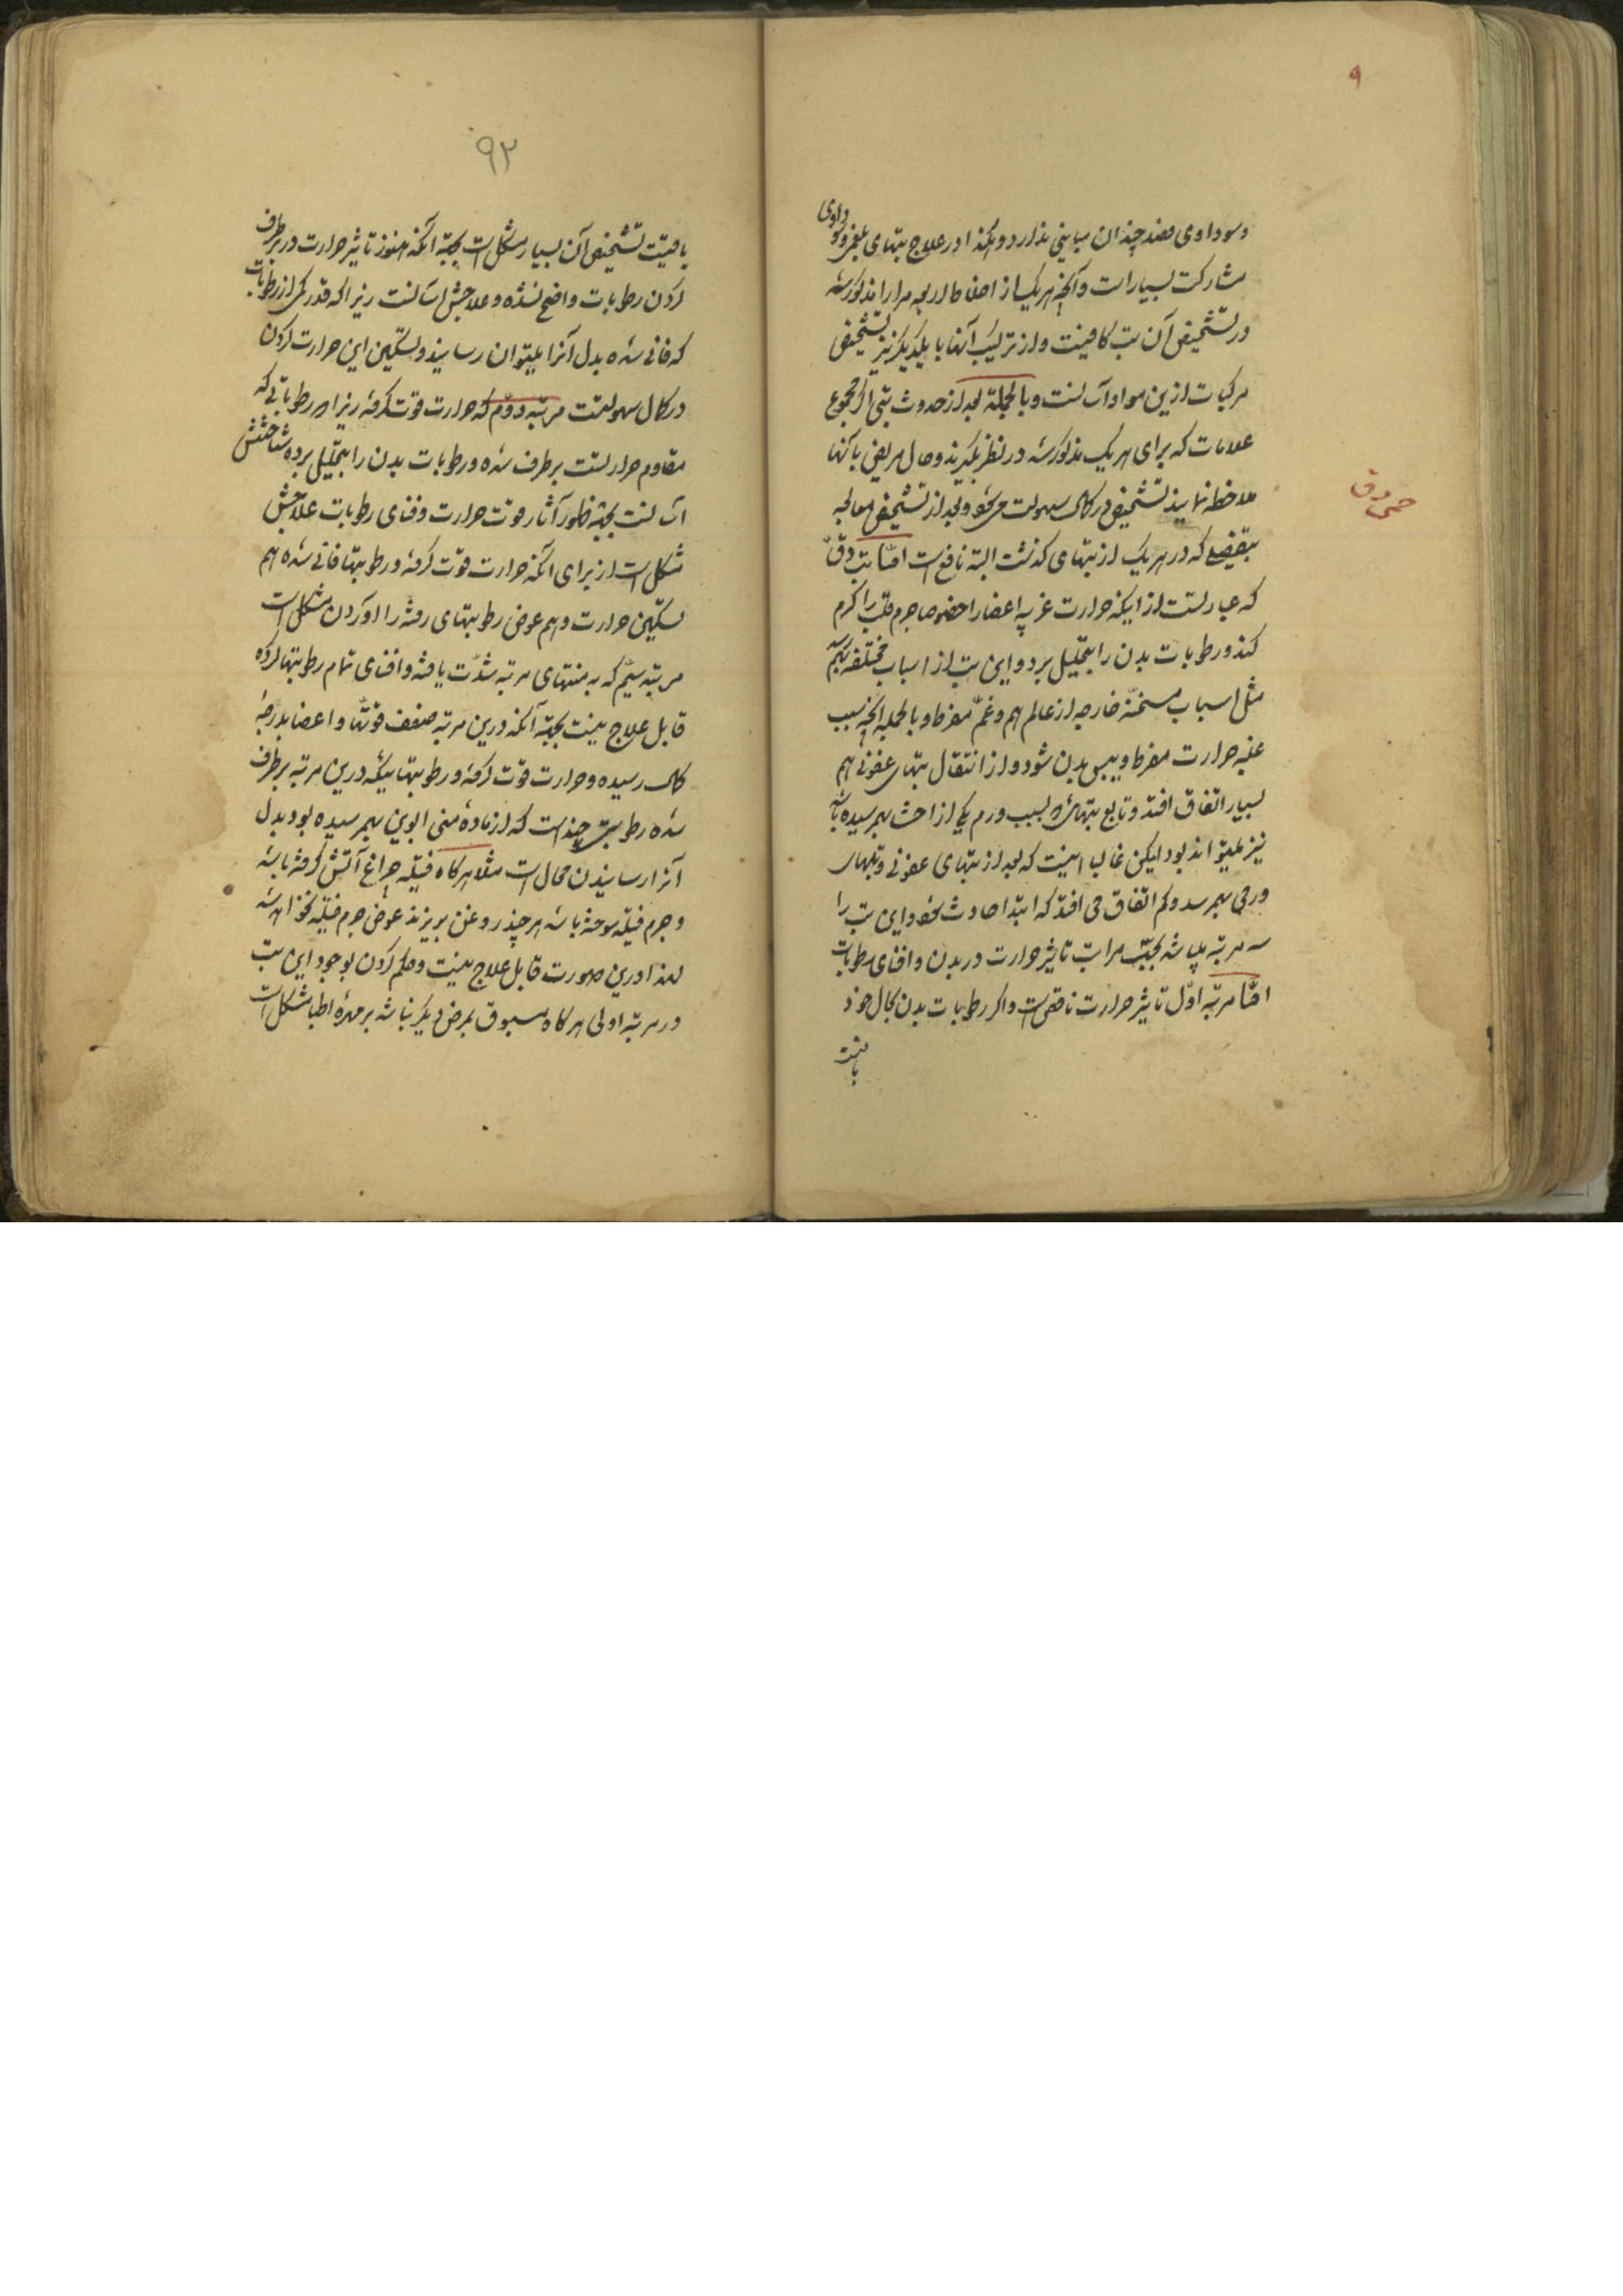 ۹
و سوداوی فصد چندان مباینتی ندارد و هکذا در علاج تبهای بلغمی و سوداوی
مشارکت بسیار است و آنچه در هر یک از اخلاط اربعه مرارا مذکور شد
در تشخیص آن تب کافیست و از ترکیب آنها با یکدیگر نیز تشخیص
مرکبات ازین مواد آسانست و بالجمله بعد از حدوث تبی اگر مجموع
علامات که برای هر یک مذکور شد در نظر بگیرند و حال مریض با آنها
ملاحظه نمایند تشخیص در کمال سهولت می‌شود و بعد از تشخیص معالجه
حمی دق
بتفصیلی که در هر یک از تبهای گذشت البته نافع است امّا تب دقّ
که عبارتست از اینکه حرارت غریبه اعضا را خصوصا جرم قلب را گرم
کند و رطوبات بدن را بتحلیل برد و این تب از اسباب مختلفه بهم رسد
مثل اسباب مسخّنه خارجه از عالم هم و غمّ مفرط و بالجمله آنچه سبب
غلبه حرارت مفرط و یبس بدن شود و از انتقال تبهای عفونی هم
بسیار اتفاق افتد و تابع تبهائی که بسبب ورم یکی از احشا بهم رسیده باشد
نیز میتواند بود لیکن غالبا اینست که بعد از تبهای عفونی و تبهای
ورمی بهم رسد و کم اتفاق می افتد که ابتدا حادث شود و این تب را
سه مرتبه میباشد بحسب مراتب تاثیر حرارت در بدن و افنای رطوبات
امّا مرتبه اوّل تاثیر حرارت ناقص است و اکثر رطوبات بدن بحال خود
باقیست
۹۲
باقیست تشخیص آن بسیار مشکل است بجهة آنکه هنوز تاثیر حرارت در برطرف
کردن رطوبات واضح نشده و علاجش آسانست زیرا که قدر کمی از رطوبات
که فانی شده بدل آنرا میتوان رسانید و تسکین این حرارت کردن
در کمال سهولتست مرتبه دوّم که حرارت قوّت گرفته زیرا که رطوباتی که
مقاوم حرارتست برطرف شده و رطوبات بدن را بتحلیل برده شناختنش
آسانست بجهة ظهور آثار قوت حرارت و فنای رطوبات علاجش
مشکل است از برای آنکه حرارت قوّت گرفته و رطوبتها فانی شده هم
تسکین حرارت و هم عوض رطوبتهای رفته را آوردن مشکل است
مرتبه سیّم که به منتهای مرتبه شدّت یافته و افنای تمام رطوبتها کرده
قابل علاج نیست بجهة آنکه درین مرتبه ضعف قوّتها و اعضا بدرجه
کمال رسیده و حرارت قوّت گرفته و رطوبتهائیکه درین مرتبه برطرف
شده رطوبتی چند است که از ماده منی ابوین بهم رسیده بود بدل
آنرا رسانیدن محال است مثلا هر گاه فتیله چراغ آتش گرفته باشد
و جرم فتیله سوخته باشد هر چند روغن بریزند عوض جرم فتیله نخواهد شد
لهذا درین صورت قابل علاج نیست و حکم کردن بوجود این تب
در مرتبه اولی هر گاه مسبوق بمرض دیگر نباشد بر مهره اطبا مشکل است